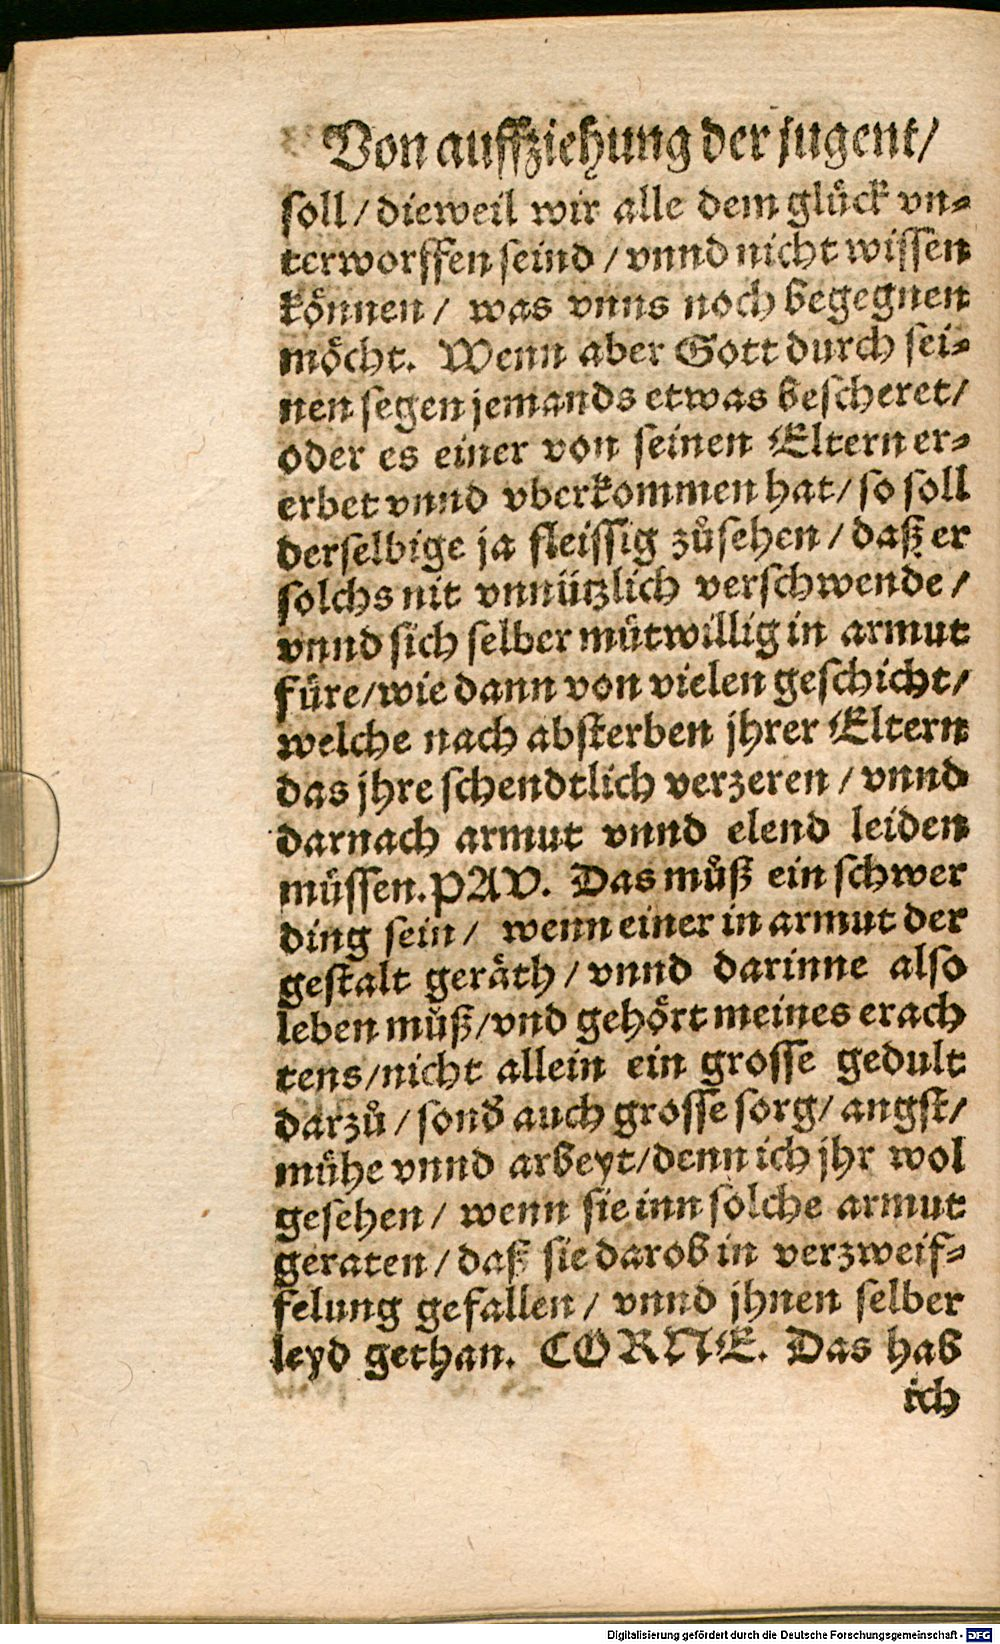 Von auffziehung der jugent/
soll/ dieweil wir alle dem glück vn-
terworffen seind / vnnd nicht wissen
können / was vnns noch begegnen
möcht. Wenn aber Gott durch sei-
nen segen jemands etwas bescheret/
oder es einer von seinen Eltern er-
erbet vnnd vberkommen hat/ so soll
derselbige ja fleissig zůsehen / daß er
solchs nit vnnützlich verschwende /
vnnd sich selber můtwillig in armut
füre/wie dann von vielen geschicht/
welche nach absterben jhrer Eltern
das jhre schendtlich verzeren / vnnd
darnach armut vnnd elend leiden
müssen. PAV. Das můß ein schwer
ding sein / wenn einer in armut der
gestalt geräth / vnnd darinne also
leben můß/vnd gehört meines erach
tens/nicht allein ein grosse gedult
darzů / sond̕ auch grosse sorg/ angst/
mühe vnnd arbeyt/denn ich jhr wol
gesehen / wenn sie inn solche armut
geraten / daß sie darob in verzweif-
felung gefallen / vnnd jhnen selber
leyd gethan. CORNE. Das hab
ich
Digitalisierung gefördert durch die Deutsche Forschungsgemeinschaft - DFG